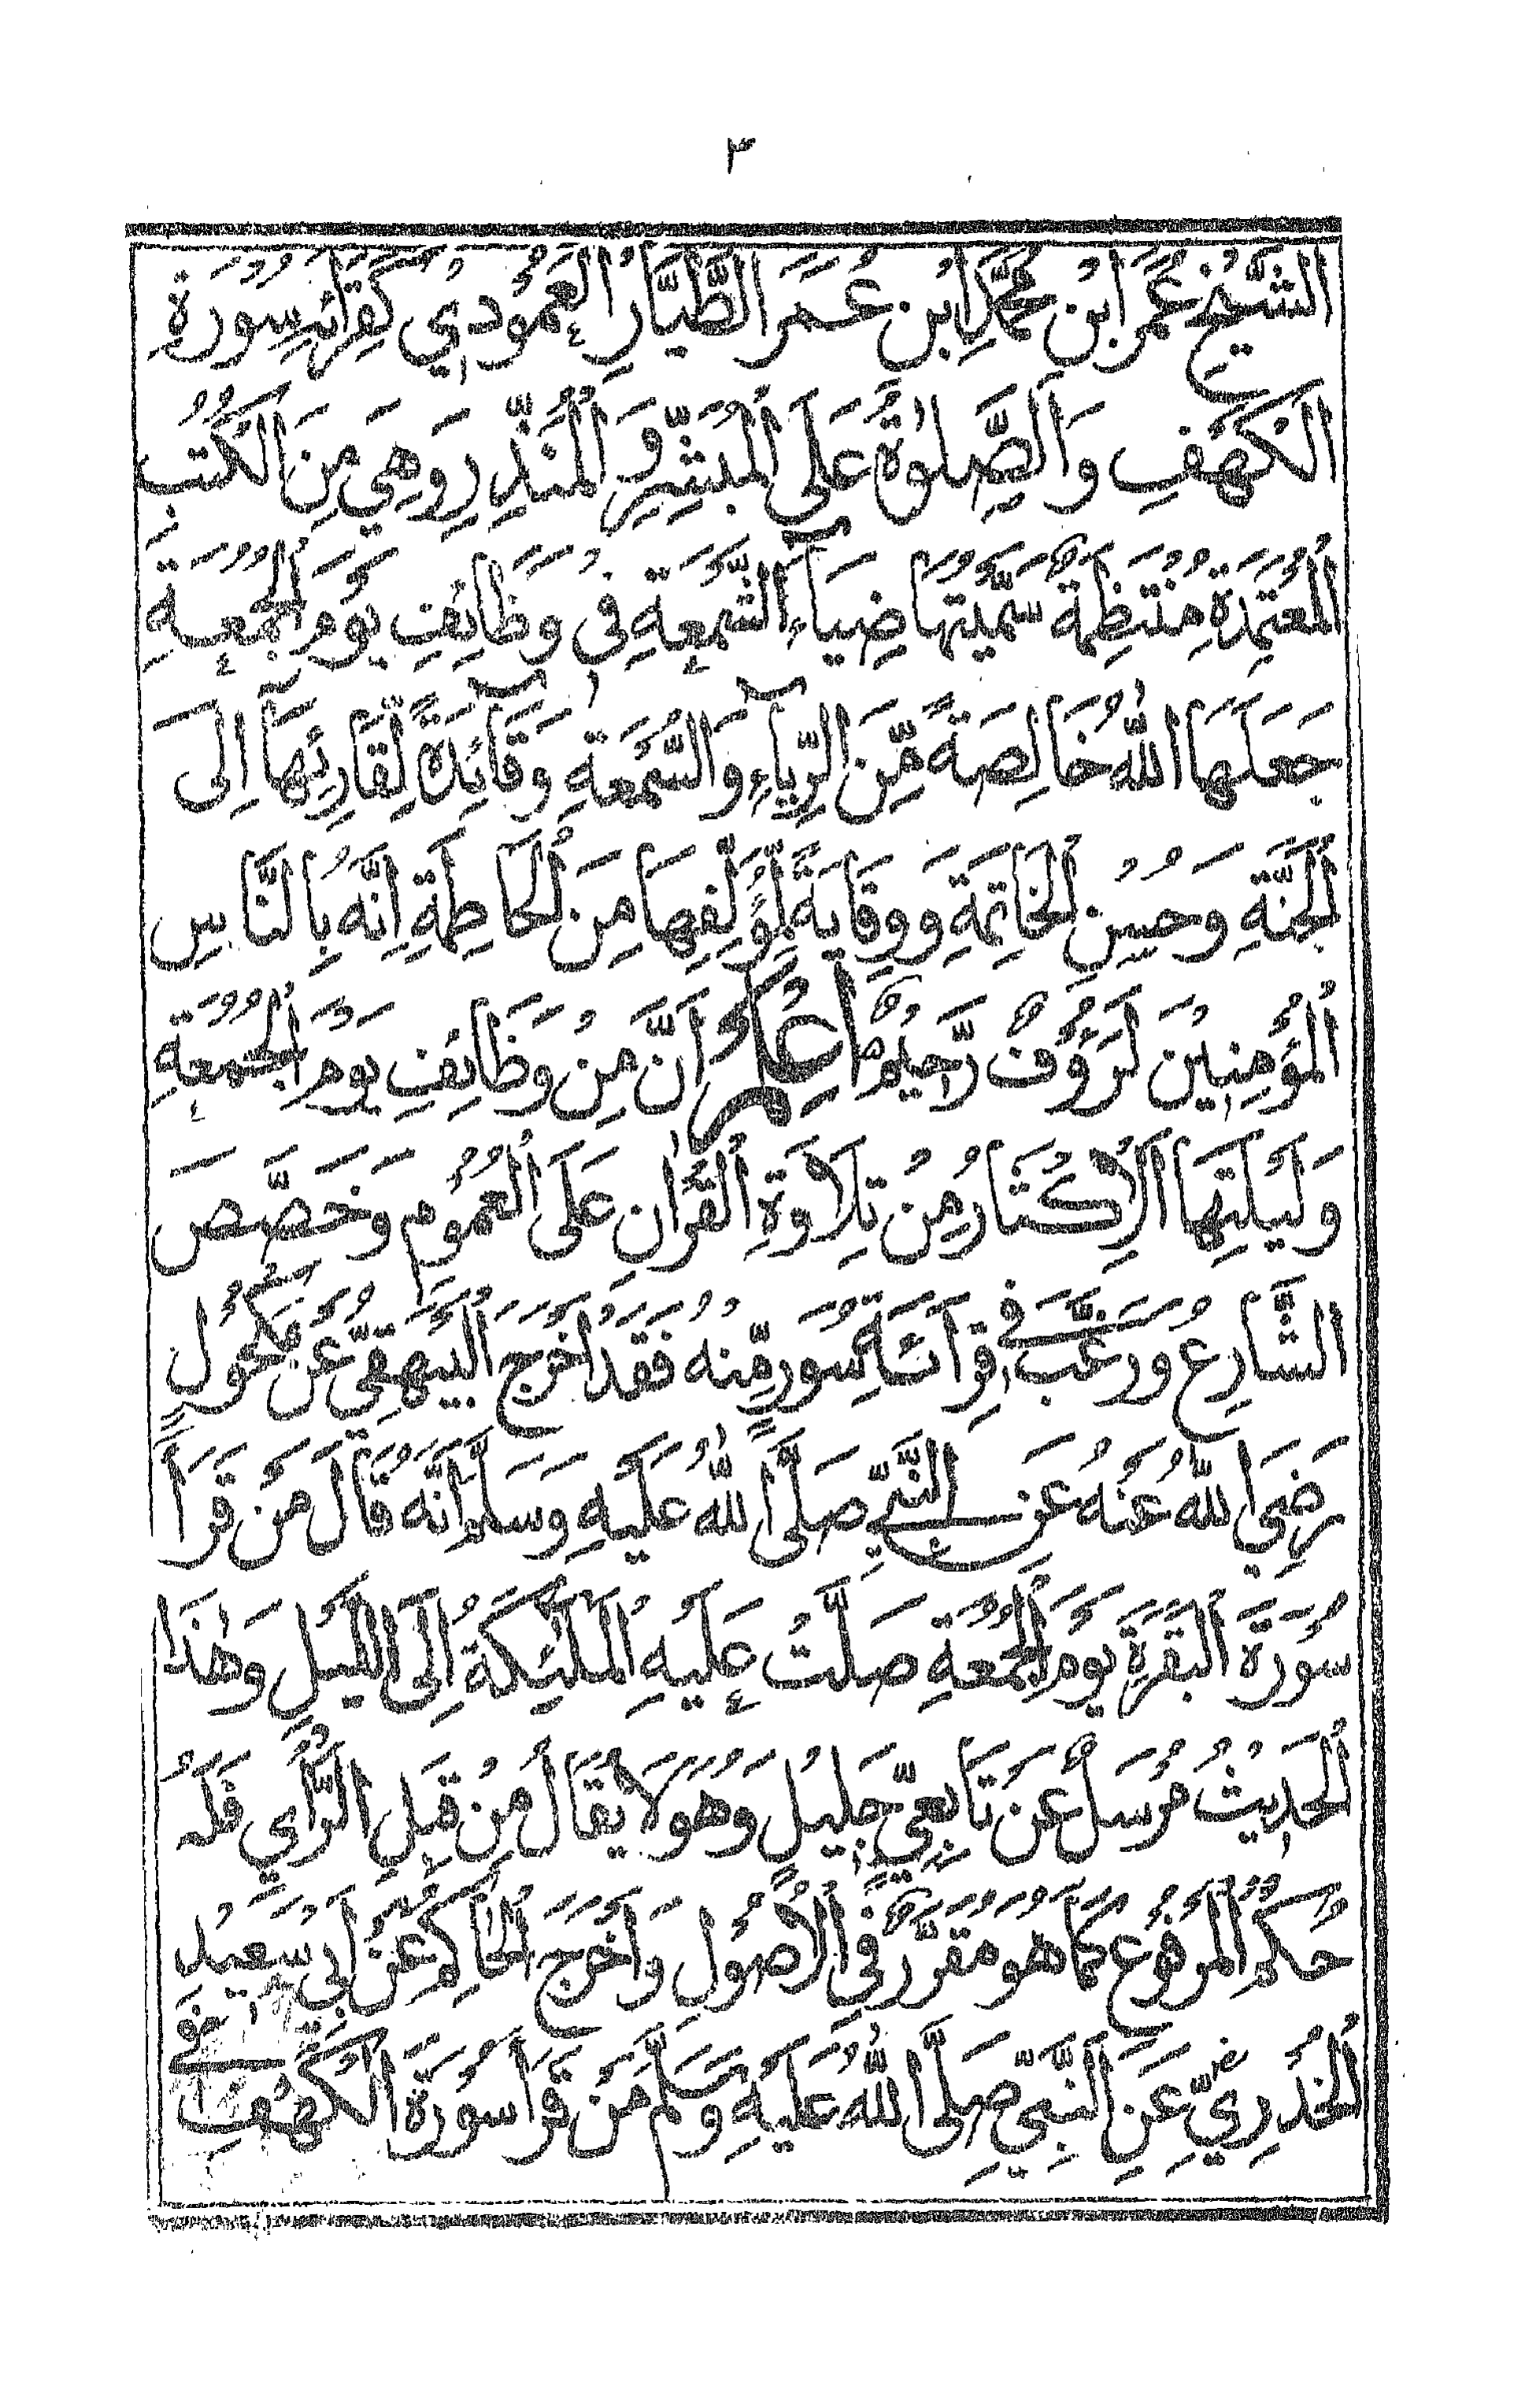 ٣
الشَّيْخِ عُمَرَ ابْنِ مُحَمَّدِ ابْنِ عُمَرَ الطَّيَّارِ الْعَمُوْدِيِ كَقِرَائَةِ سُوْرَةِ
الْكَهْفِ وَالصَّلٰوةُ عَلَى الْمُبَشِّرِ وَ الْمُنَذِّرِ وَهِيَ مِنَ الْكُتُبِ
الْمُعْتَمَدَةِ مُنْتَظِمَةٌ سَمَّيْتُهَا ضِيَآءِ الشَّمْعَةِ فِى وَظَائِفِ يَوْمِ الْجُمُعَةِ
جَعَلَهَا اللّٰهُ خَالِصَةً مِّنَ الرِّيَآءِ وَالسُّمْعَةِ وَقَآئِدَةً لِّقَارِئِهَآ اِلَى
الْجَنَّةِ وَحُسْنِ الْخَاتِمَةِ وَوِقَايَةً لِّمُؤَلِّفِهَا مِنَ الْحَاطِمَةِ اِنَّهُ بِالنَّاسِ
الْمُؤْمِنِيْنَ لَرَؤُوْفٌ رَّحِيْمٌ اِعْلَمْ اَنَّ مِنْ وَظَائِفِ يَوْمِ الْجُمُعَةِ
وَلَيْلَتِهَا اَلْاِكْثَارُ مِنْ تِلَاوَةِ الْقُرْاٰنِ عَلَى الْعُمُوْمِ وَخَصَّصَ
الشَّارِعُ وَرَغَّبَ فِي قِرَائَةِ سُوَرٍ مِّنْهُ فَقَدْ اَخْرَجَ الْبَيْهَقِيُّ عَنْ مَكْحُوْلٍ
رَضِيَ اللّٰهُ عَنْهُ عَنِ النَّبِيِّ صَلَّى اللّٰهُ عَلَيْهِ وَسَلَّمَ اَنَّهُ قَالَ مَنْ قَرَأَ
سُوْرَةَ الْبَقَرَةِ يَوْمَ الْجُمُعَةِ صَلَّتْ عَلَيْهِ الْمَلٰئِكَةُ اِلَى اللَّيْلِ وَهٰذَا
الْحَدِيْثُ مُرْسَلٌ عَنْ تَابِعِيٍّ جَلِيْلٍ وَهُوَ لَا يُقَالُ مِنْ قِبَلِ الرَّأْيِ فَلَهُ
حُكْمُ الْمَرْفُوْعِ كَمَا هُوَ مُقَرَّرٌ فِي الْاُصُوْلِ وَاَخْرَجَ الْحَاكِمُ عَنْ اَبِيْ سَعِيْدِ
الْخُدْرِيِّ عَنِ النَّبِيِّ صَلَّى اللّٰهُ عَلَيْهِ وَسَلَّمَ مَنْ قَرَأَ سُوْرَةَ الْكَهْفِ فِي